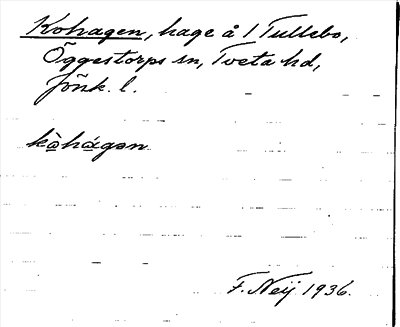 Kohagen, hage å 1 Tullebo,
Öggestorps sn, Tveta hd,
Jönk. l.
kò̱há̱gən
F. Neij 1936.